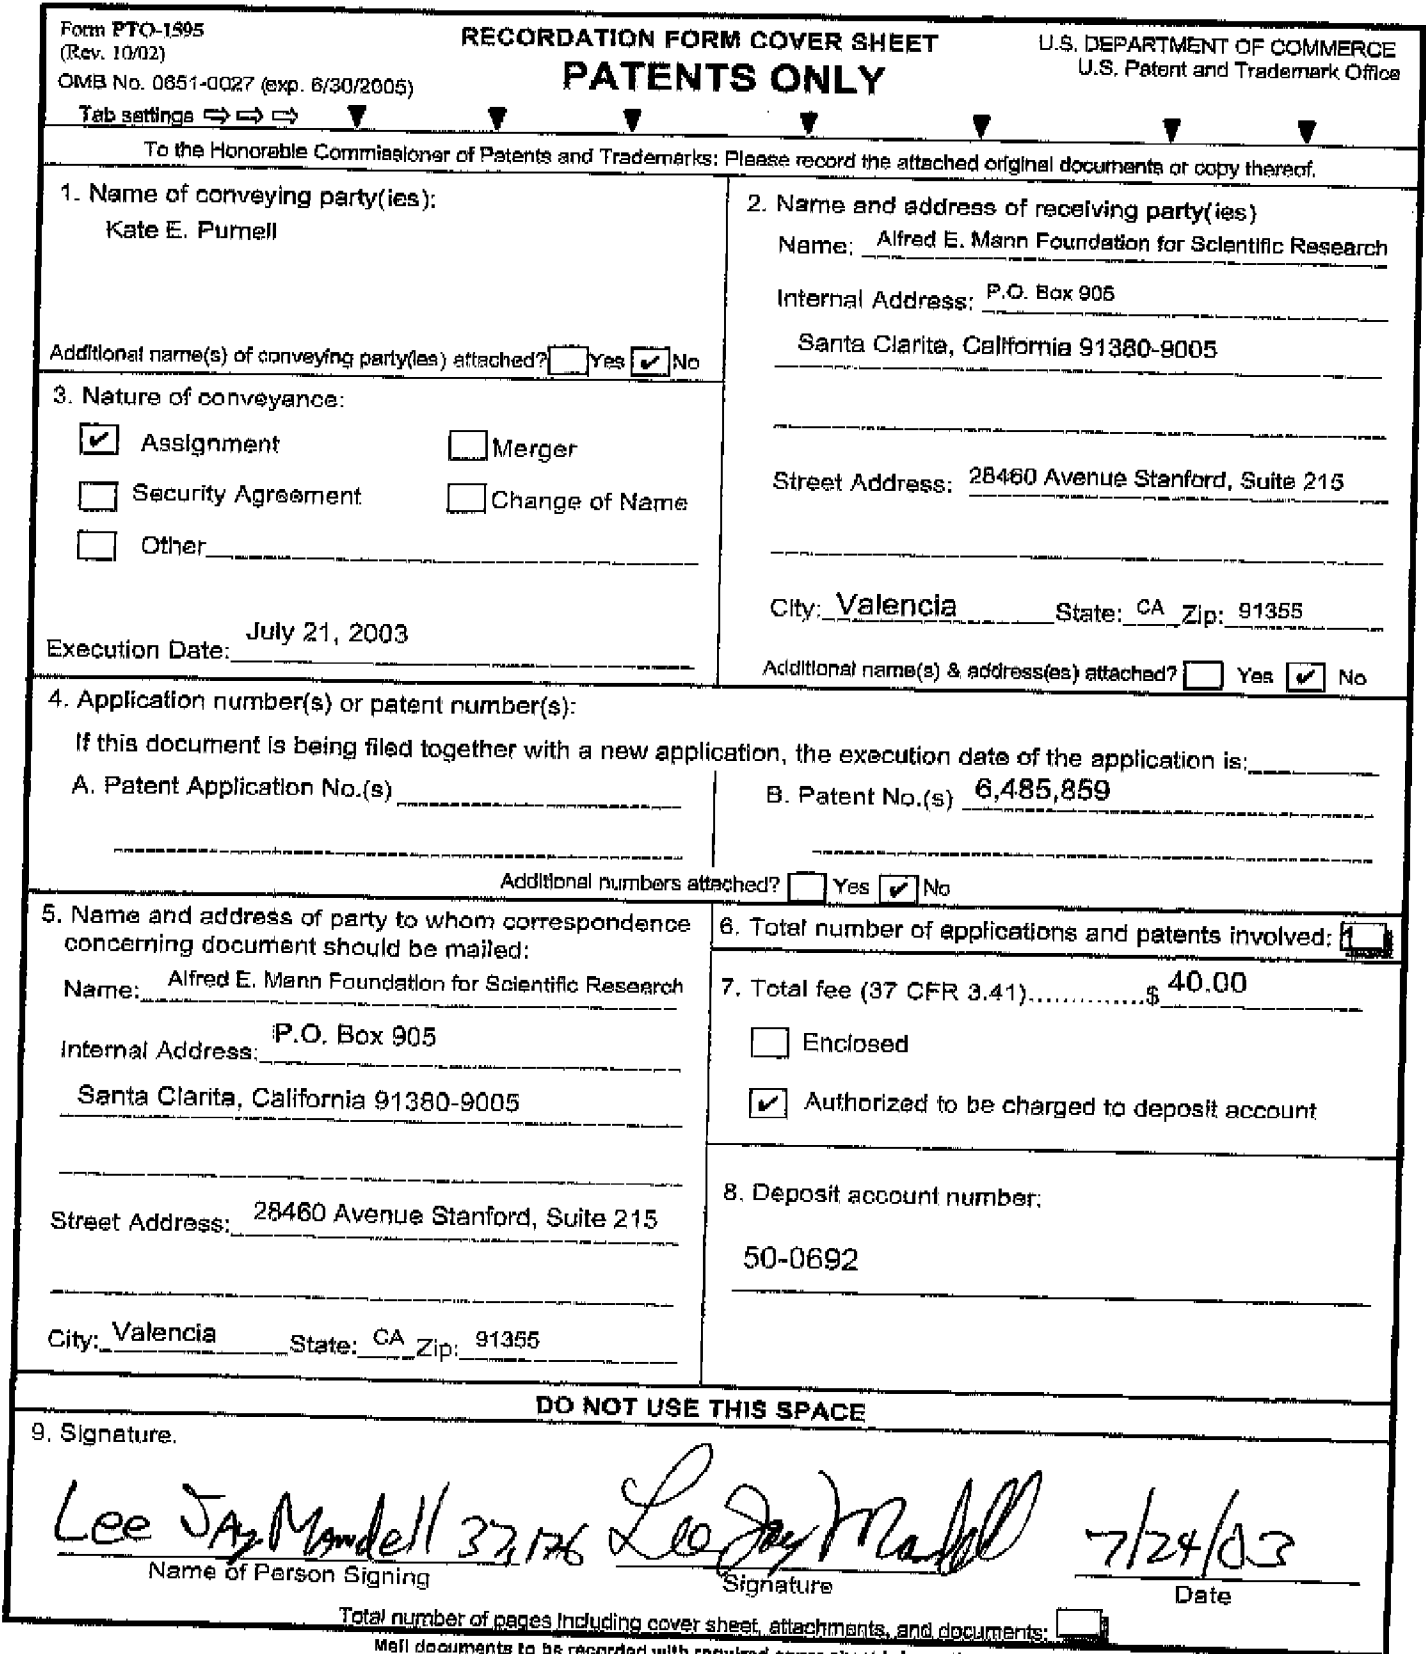 Form PTO-1595
(Rev. 10/02)
OMB No. 0651-0027 (exp. 6/30/2005)
Tab settings ⇨ ⇨ ⇨ ▼ ▼ ▼ ▼ ▼ ▼ ▼
RECORDATION FORM COVER SHEET
PATENTS ONLY
U.S. DEPARTMENT OF COMMERCE
U.S. Patent and Trademark Office
To the Honorable Commissioner of Patents and Trademarks: Please record the attached original documents or copy thereof.
1. Name of conveying party(ies):
Kate E. Purnell
Additional name(s) of conveying party(ies) attached? Yes ✔ No
2. Name and address of receiving party(ies)
Name: Alfred E. Mann Foundation for Scientific Research
Internal Address: P.O. Box 905
Santa Clarita, California 91380-9005
Street Address: 28460 Avenue Stanford, Suite 215
City: Valencia State: CA Zip: 91355
Additional name(s) & address(es) attached? Yes ✔ No
3. Nature of conveyance:
✔ Assignment Merger
Security Agreement Change of Name
Other
Execution Date: July 21, 2003
4. Application number(s) or patent number(s):
If this document is being filed together with a new application, the execution date of the application is:
A. Patent Application No.(s)
B. Patent No.(s) 6,485,859
Additional numbers attached? Yes ✔ No
5. Name and address of party to whom correspondence
concerning document should be mailed:
Name: Alfred E. Mann Foundation for Scientific Research
Internal Address: P.O. Box 905
Santa Clarita, California 91380-9005
Street Address: 28460 Avenue Stanford, Suite 215
City: Valencia State: CA Zip: 91355
6. Total number of applications and patents involved: 1
7. Total fee (37 CFR 3.41)..............$ 40.00
Enclosed
✔ Authorized to be charged to deposit account
8. Deposit account number:
50-0692
DO NOT USE THIS SPACE
9. Signature.
Lee Jay Mandell 37,176 Lee Jay Mandell 7/24/03
Name of Person Signing Signature Date
Total number of pages including cover sheet, attachments, and documents:
Mail documents to be recorded with required cover sheet